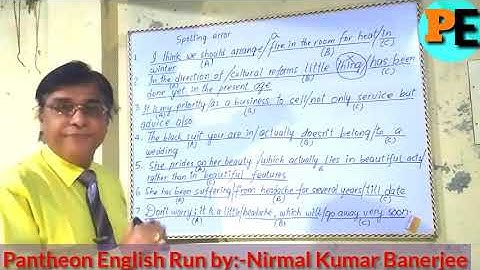 PE
Spotting error
1. I think we should arrange/a fire in the room for heat/in
(A) (B) (C)
winter
2. In the direction of/cultural reforms little thing/has been
(A) (B) (C)
done yet in the present age
3. It is my priority/as a business to sell/not only service but
(A) (B) (C)
advice also
4. The black suit you are in/actually doesn't belong/to a
(A) (B) (C)
wedding
5. She prides on her beauty/which actually lies in beautiful acts
(A) (B)
rather than in beautiful features
(C)
6. She has been suffering/from headache for several years/till date
(A) (B) (C)
7. Don't worry; it is a little/headache, which will/go away very soon.
(A) (B) (C)
Pantheon English Run by:-Nirmal Kumar Banerjee